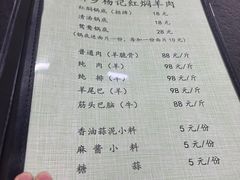 杨记红焖羊肉
红焖锅底（招牌） 18 元
清汤锅底 18 元
鸳鸯锅底 28 元
普通肉（羊腱骨） 88 元/斤
纯 肉（羊） 98 元/斤
纯 排（羊） 98 元/斤
羊尾巴（羊） 88 元/斤
筋头巴脑（牛） 88 元/斤
香油蒜泥小料 5 元/份
麻酱小料 5 元/份
糖 蒜 5 元/份